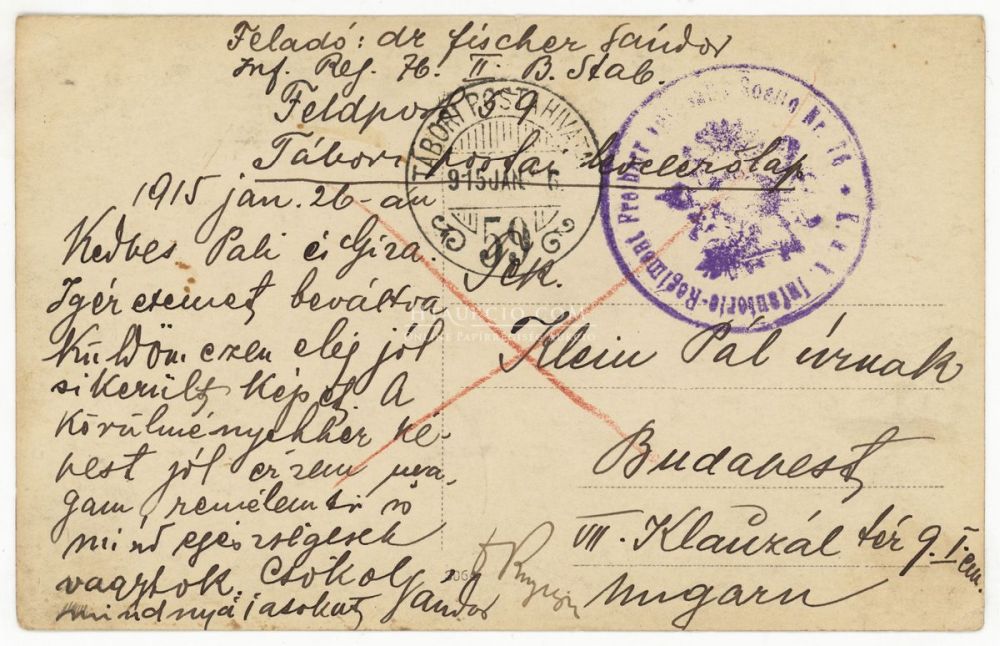 Feladó: dr fischer Sándor
Inf. Reg. 76. II. B. Stab.
Feldpost 39
Tábori postai levelezőlap
TÁBORI POSTAHIVATAL
915 JAN 6
59
K. u. k. Infanterie-Regiment Freiherr Nr. 76
1915 jan. 26-án
Kedves Pali és Giza.
Igéretemet beváltva
Küldöm ezen elég jól
sikerült képet. A
Körülményekhez ké-
pest jól érzem ma-
gam, remélem ti is
mind egészségesek
vagytok. Csókol
mindnyáiatokat Sándor
Tek.
Klein Pál úrnak
Budapest
VII. Klauzál tér 9. I. em.
Ungarn
HLAUKCIO.COM
ONLINE PAPÍRRÉGISÉG AUKCIÓ